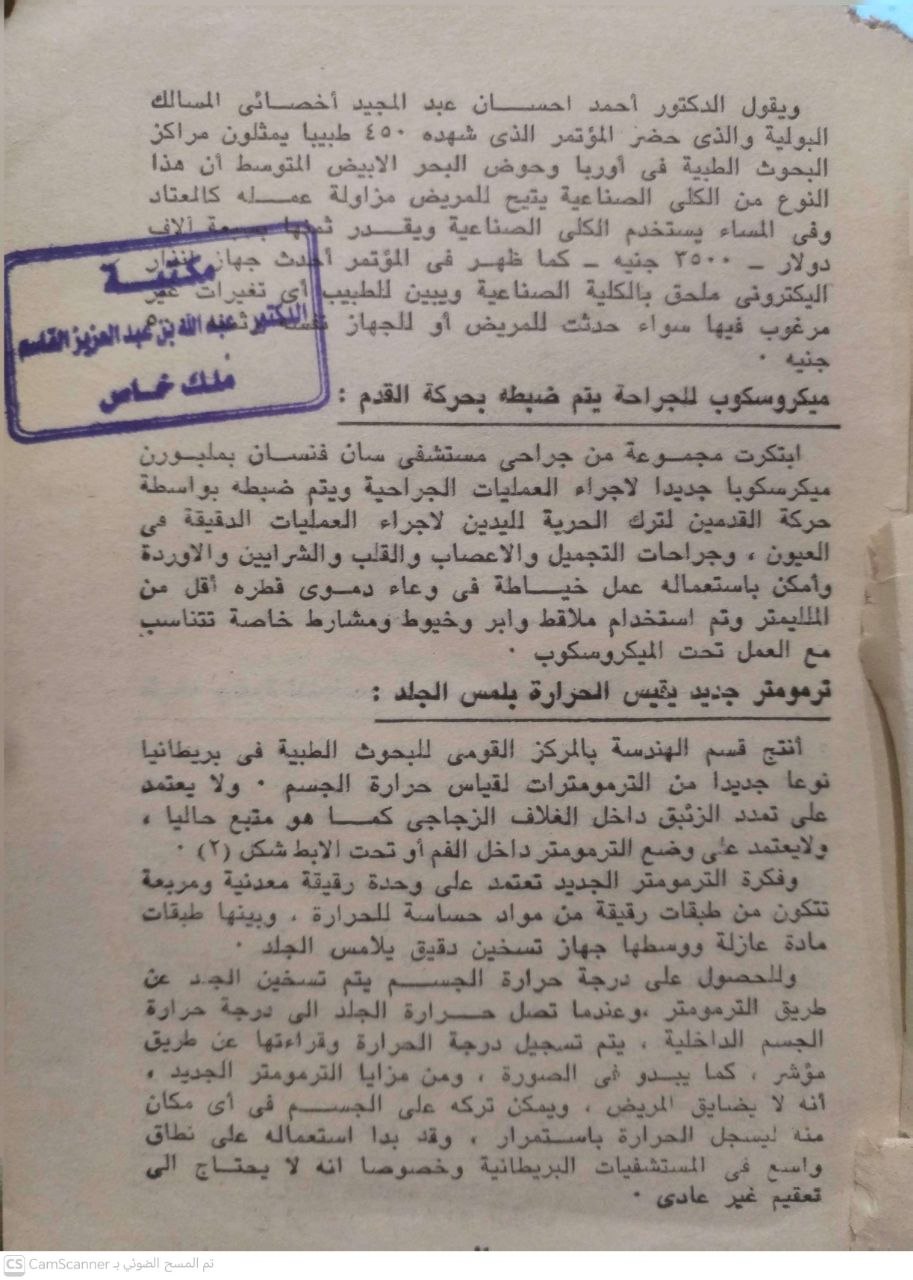 ويقول الدكتور أحمد احسان عبد المجيد أخصائى المسالك
البولية والذى حضر المؤتمر الذى شهده ٤٥٠ طبيبا يمثلون مراكز
البحوث الطبية فى أوربا وحوض البحر الابيض المتوسط أن هذا
النوع من الكلى الصناعية يتيح للمريض مزاولة عمله كالمعتاد
وفى المساء يستخدم الكلى الصناعية ويقدر ثمنها بسبعة آلاف
دولار ـ ٣٥٠٠ جنيه ـ كما ظهر فى المؤتمر أحدث جهاز انذار
اليكترونى ملحق بالكلية الصناعية ويبين للطبيب أى تغيرات غير
مرغوب فيها سواء حدثت للمريض أو للجهاز نفسه
جنيه ٠
مكتبة
الدكتور عبد الله بن عبد العزيز القاسم
ملك خاص
ميكروسكوب للجراحة يتم ضبطه بحركة القدم :
ابتكرت مجموعة من جراحى مستشفى سان فنسان بملبورن
ميكرسكوبا جديدا لاجراء العمليات الجراحية ويتم ضبطه بواسطة
حركة القدمين لترك الحرية لليدين لاجراء العمليات الدقيقة فى
العيون ، وجراحات التجميل والاعصاب والقلب والشرايين والاوردة
وأمكن باستعماله عمل خياطة فى وعاء دموى قطره أقل من
الملليمتر وتم استخدام ملاقط وابر وخيوط ومشارط خاصة تتناسب
مع العمل تحت الميكروسكوب ٠
ترمومتر جديد يقيس الحرارة بلمس الجلد :
أنتج قسم الهندسة بالمركز القومى للبحوث الطبية فى بريطانيا
نوعا جديدا من الترمومترات لقياس حرارة الجسم ٠ ولا يعتمد
على تمدد الزئبق داخل الغلاف الزجاجى كما هو متبع حاليا ،
ولايعتمد على وضع الترمومتر داخل الفم أو تحت الابط شكل (٢) ٠
وفكرة الترمومتر الجديد تعتمد على وحدة رقيقة معدنية ومربعة
تتكون من طبقات رقيقة من مواد حساسة للحرارة ، وبينها طبقات
مادة عازلة ووسطها جهاز تسخين دقيق يلامس الجلد ٠
وللحصول على درجة حرارة الجسم يتم تسخين الجلد عن
طريق الترمومتر ،وعندما تصل حرارة الجلد الى درجة حرارة
الجسم الداخلية ، يتم تسجيل درجة الحرارة وقراءتها عن طريق
مؤشر ، كما يبدو فى الصورة ، ومن مزايا الترمومتر الجديد ،
أنه لا يضايق المريض ، ويمكن تركه على الجسم فى أى مكان
منه ليسجل الحرارة باستمرار ، وقد بدا استعماله على نطاق
واسع فى المستشفيات البريطانية وخصوصا انه لا يحتاج الى
تعقيم غير عادى ٠
CS CamScanner تم المسح الضوئي بـ